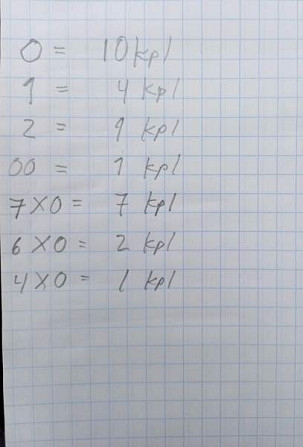 0 = 10 kpl
1 = 4 kpl
2 = 1 kpl
00 = 1 kpl
7X0 = 7 kpl
6X0 = 2 kpl
4X0 = 1 kpl